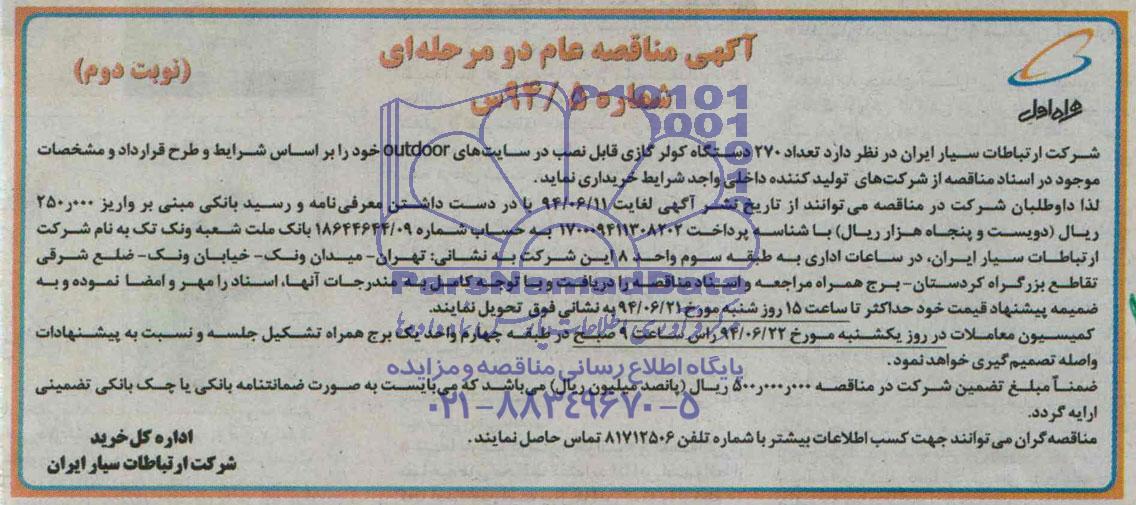 آگهی مناقصه عام دو مرحله‌ای
(نوبت دوم)
شماره ۹۴/۵س
همراه اول
شرکت ارتباطات سیار ایران در نظر دارد تعداد ۲۷۰ دستگاه کولر گازی قابل نصب در سایت‌های outdoor خود را بر اساس شرایط و طرح قرارداد و مشخصات
موجود در اسناد مناقصه از شرکت‌های تولید کننده داخلی واجد شرایط خریداری نماید.
لذا داوطلبان شرکت در مناقصه می‌توانند از تاریخ نشر آگهی لغایت ۹۴/۰۶/۱۱ با در دست داشتن معرفی‌نامه و رسید بانکی مبنی بر واریز ۲۵۰٫۰۰۰
ریال (دویست و پنجاه هزار ریال) با شناسه پرداخت ۱۷۰۰۰۹۴۱۱۳۰۸۲۰۲ به حساب شماره ۱۸۶۴۴۶۴۴/۰۹ بانک ملت شعبه ونک تک به نام شرکت
ارتباطات سیار ایران، در ساعات اداری به طبقه سوم واحد ۸ این شرکت به نشانی: تهران- میدان ونک- خیابان ونک- ضلع شرقی
تقاطع بزرگراه کردستان- برج همراه مراجعه و اسناد مناقصه را دریافت و با توجه کامل به مندرجات آنها، اسناد را مهر و امضا نموده و به
ضمیمه پیشنهاد قیمت خود حداکثر تا ساعت ۱۵ روز شنبه مورخ ۹۴/۰۶/۲۱ به نشانی فوق تحویل نمایند.
کمیسیون معاملات در روز یکشنبه مورخ ۹۴/۰۶/۲۲ راس ساعت ۹ صبح در طبقه چهارم واحد یک برج همراه تشکیل جلسه و نسبت به پیشنهادات
واصله تصمیم گیری خواهد نمود.
ضمناً مبلغ تضمین شرکت در مناقصه ۵۰۰٫۰۰۰٫۰۰۰ ریال (پانصد میلیون ریال) می‌باشد که می‌بایست به صورت ضمانتنامه بانکی یا چک بانکی تضمینی
ارایه گردد.
مناقصه‌گران می‌توانند جهت کسب اطلاعات بیشتر با شماره تلفن ۸۱۷۱۲۵۰۶ تماس حاصل نمایند.
اداره کل خرید
شرکت ارتباطات سیار ایران
ParsNamadData
پایگاه اطلاع رسانی مناقصه و مزایده
۰۲۱-۸۸۳۴۹۶۷۰-۵